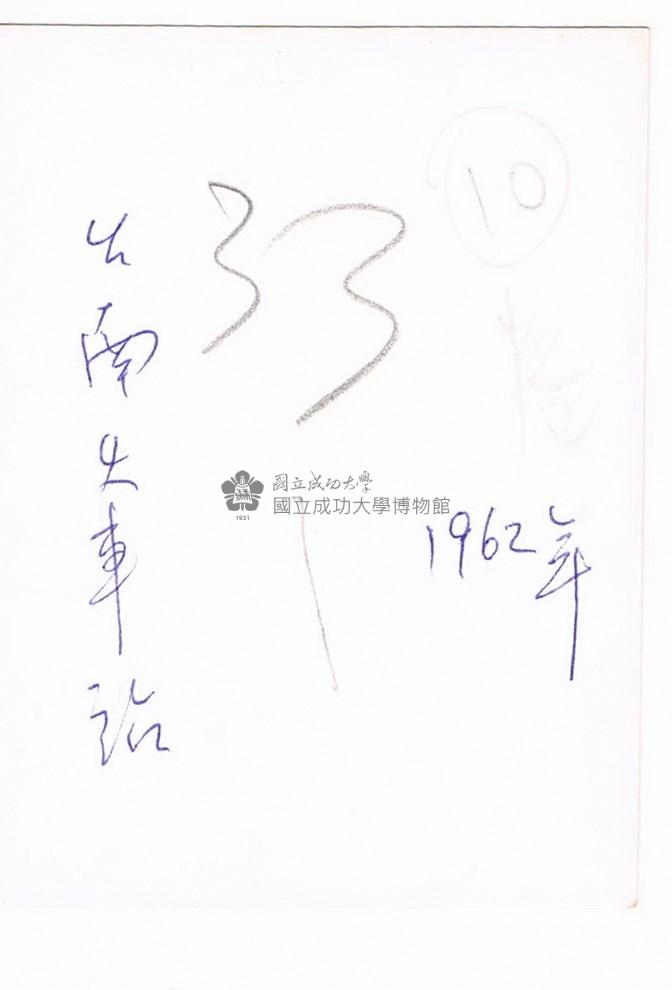 10
33
1962年
台南火車站
國立成功大學
國立成功大學博物館
1931